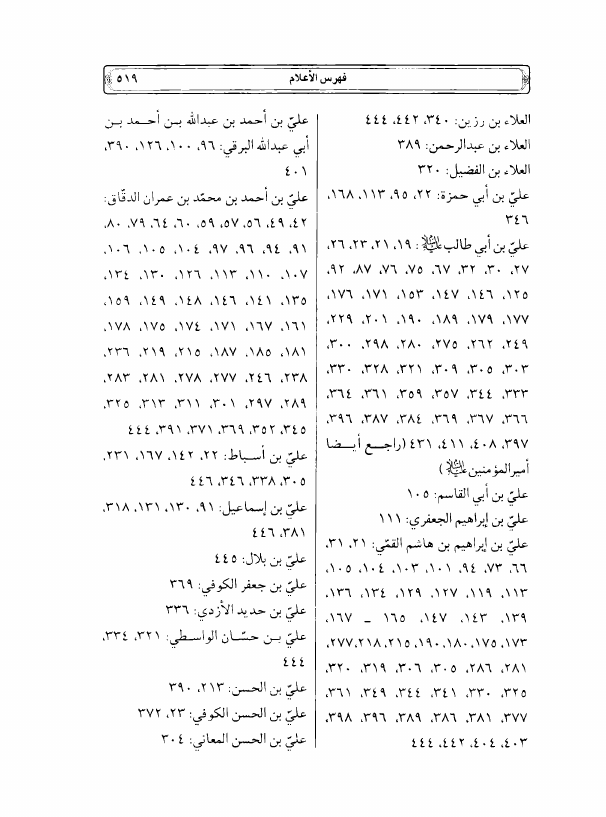 فهرس الأعلام
٥١٩
العلاء بن رزين: ٣٤٠، ٤٤٢، ٤٤٤
العلاء بن عبدالرحمن: ٣٨٩
العلاء بن الفضيل: ٣٢٠
عليّ بن أبي حمزة: ٢٢، ٩٥، ١١٣، ١٦٨،
٣٤٦
عليّ بن أبي طالب عليه السلام: ١٩، ٢١، ٢٣، ٢٦،
٢٧، ٣٠، ٣٢، ٦٧، ٧٥، ٧٦، ٨٧، ٩٢،
١٢٥، ١٤٦، ١٤٧، ١٥٣، ١٧١، ١٧٦،
١٧٧، ١٧٩، ١٨٩، ١٩٠، ٢٠١، ٢٢٩،
٢٤٩، ٢٦٢، ٢٧٥، ٢٨٠، ٢٩٨، ٣٠٠،
٣٠٣، ٣٠٥، ٣٠٩، ٣٢١، ٣٢٨، ٣٣٠،
٣٣٣، ٣٤٤، ٣٥٧، ٣٥٩، ٣٦١، ٣٦٤،
٣٦٦، ٣٦٧، ٣٦٩، ٣٨٤، ٣٨٧، ٣٩٦،
٣٩٧، ٤٠٨، ٤١١، ٤٣١ (راجع أيضا
أميرالمؤمنين عليه السلام)
عليّ بن أبي القاسم: ١٠٥
عليّ بن إبراهيم الجعفري: ١١١
عليّ بن إبراهيم بن هاشم القمّي: ٢١، ٣١،
٦٦، ٧٣، ٩٤، ١٠١، ١٠٣، ١٠٤، ١٠٥،
١١٣، ١١٩، ١٢٧، ١٢٩، ١٣٤، ١٣٦،
١٣٩، ١٤٣، ١٤٧، ١٦٥ ـ ١٦٧،
١٧٣، ١٧٥، ١٨٠، ١٩٠، ٢١٥، ٢١٨، ٢٧٧،
٢٨١، ٢٨٦، ٣٠٥، ٣٠٦، ٣١٩، ٣٢٠،
٣٢٥، ٣٣٠، ٣٤١، ٣٤٤، ٣٤٩، ٣٦١،
٣٧٧، ٣٨١، ٣٨٦، ٣٨٩، ٣٩٦، ٣٩٨،
٤٠٣، ٤٠٤، ٤٤٢، ٤٤٤
عليّ بن أحمد بن عبدالله بن أحمد بن
أبي عبدالله البرقي: ٩٦، ١٠٠، ١٢٦، ٣٩٠،
٤٠١
عليّ بن أحمد بن محمّد بن عمران الدقّاق:
٤٢، ٤٩، ٥٦، ٥٧، ٥٩، ٦٠، ٦٤، ٧٩، ٨٠،
٩١، ٩٤، ٩٦، ٩٧، ١٠٤، ١٠٥، ١٠٦،
١٠٧، ١١٠، ١١٣، ١٢٦، ١٣٠، ١٣٤،
١٣٥، ١٤١، ١٤٦، ١٤٨، ١٤٩، ١٥٩،
١٦١، ١٦٧، ١٧١، ١٧٤، ١٧٥، ١٧٨،
١٨١، ١٨٥، ١٨٧، ٢١٥، ٢١٩، ٢٣٦،
٢٣٨، ٢٤٦، ٢٧٧، ٢٧٨، ٢٨١، ٢٨٣،
٢٨٩، ٢٩٧، ٣٠١، ٣١١، ٣١٣، ٣٢٥،
٣٤٥، ٣٥٢، ٣٦٩، ٣٧١، ٣٩١، ٤٤٤
عليّ بن أسباط: ٢٢، ١٤٢، ١٦٧، ٢٣١،
٣٠٥، ٣٣٨، ٣٤٦، ٤٤٦
عليّ بن إسماعيل: ٩١، ١٣٠، ١٣١، ٣١٨،
٣٨١، ٤٤٦
عليّ بن بلال: ٤٤٥
عليّ بن جعفر الكوفي: ٣٦٩
عليّ بن حديد الأزدي: ٣٣٦
عليّ بن حسّان الواسطي: ٣٢١، ٣٣٤،
٤٤٤
عليّ بن الحسن: ٢١٣، ٣٩٠
عليّ بن الحسن الكوفي: ٢٣، ٣٧٢
عليّ بن الحسن المعاني: ٣٠٤